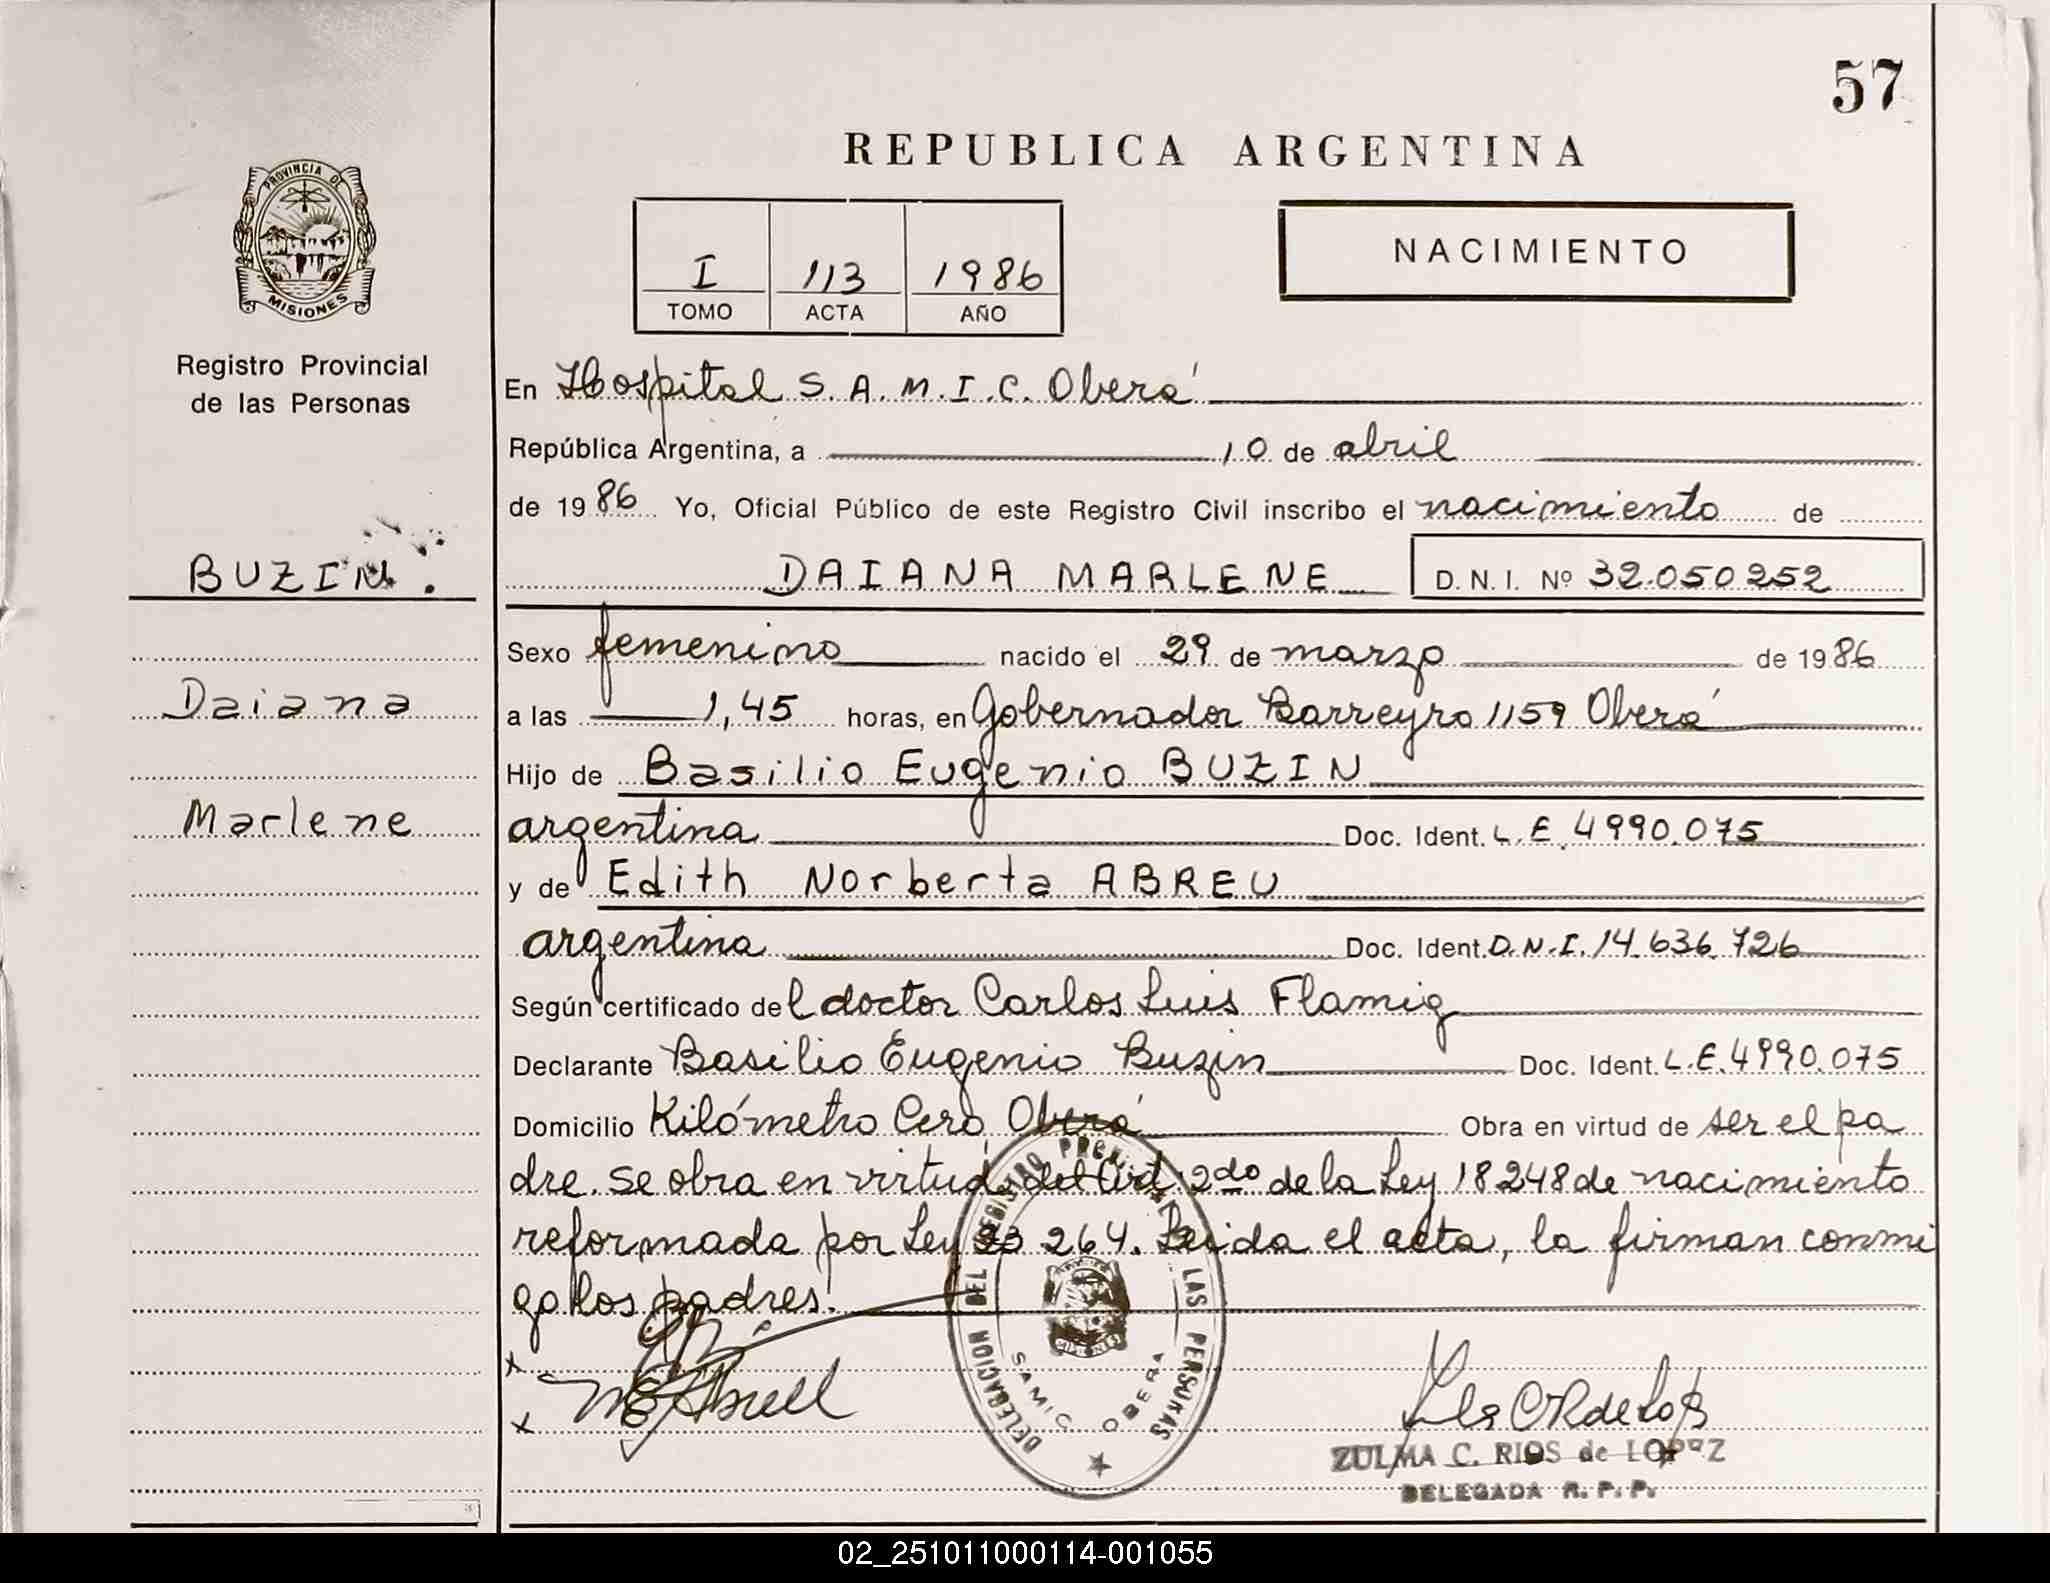 57
REPUBLICA ARGENTINA
PROVINCIA DE
MISIONES
Registro Provincial
de las Personas
NACIMIENTO
I 113 1986
TOMO ACTA AÑO
En Hospital S.A.M.I.C. Oberá
República Argentina, a 10 de abril
de 1986 Yo, Oficial Público de este Registro Civil inscribo el nacimiento de
BUZIN.
DAIANA MARLENE D.N.I. Nº 32.050252
Sexo femenino nacido el 29 de marzo de 1986
Daiana
a las 1,45 horas, en Gobernador Barreyro 1159 Oberá
Hijo de Basilio Eugenio BUZIN
Marlene
argentina Doc. Ident. L.E. 4990.075
y de Edith Norberta ABREU
argentina Doc. Ident. D.N.I. 14.636.726
Según certificado del doctor Carlos Luis Flamig
Declarante Basilio Eugenio Buzin Doc. Ident. L.E. 4990.075
Domicilio Kilómetro Cero Oberá Obra en virtud de ser el pa
dre. Se obra en virtud del Art 2do de la Ley 18248 de nacimiento
reformada por Ley 23264. Leida el acta, la firman conmi
go los padres.
DELEGACION DEL REGISTRO PROVINCIAL DE LAS PERSONAS
SAMIC OBERA
x
x
ZULMA C. RIOS de LOPEZ
DELEGADA R.P.P.
02_251011000114-001055